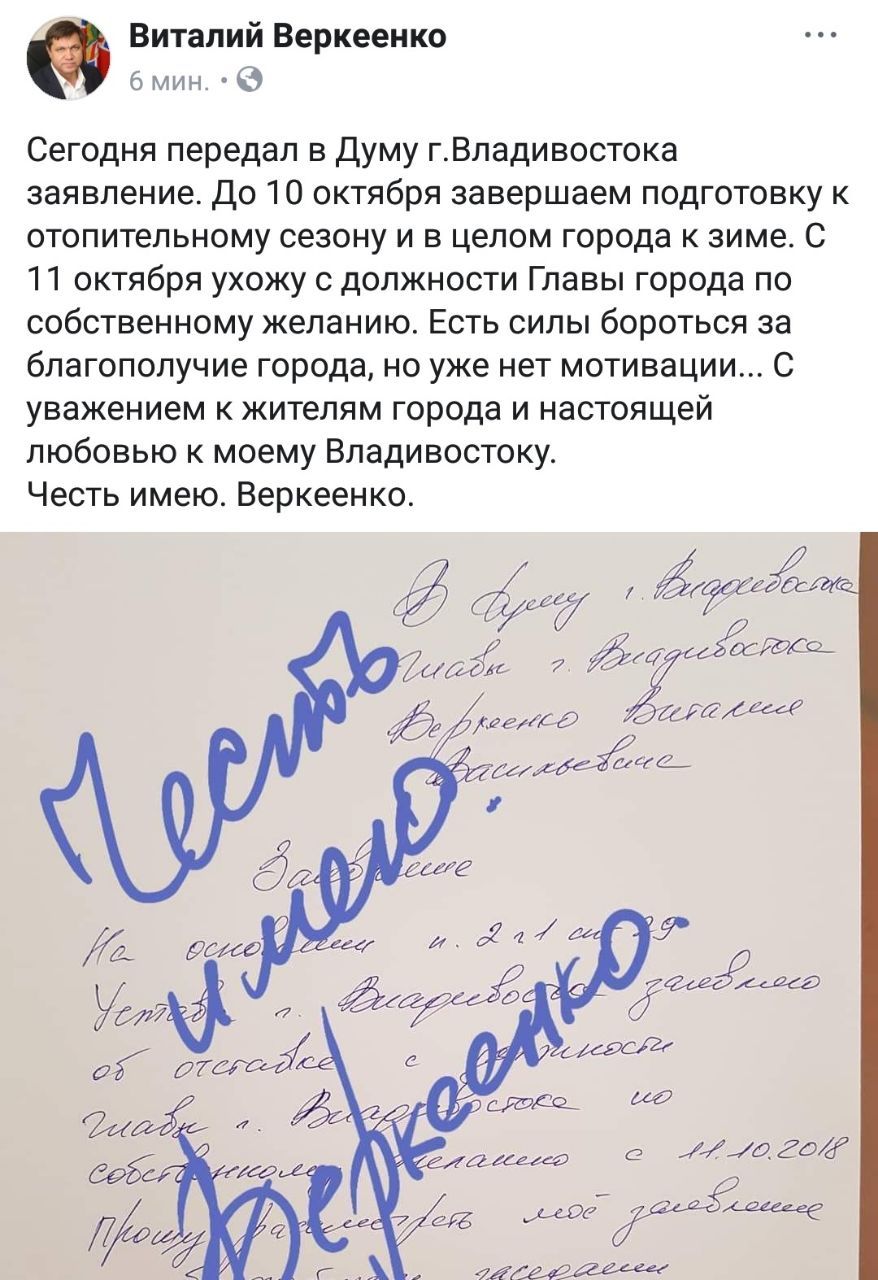 Виталий Веркеенко
6 мин.
Сегодня передал в Думу г.Владивостока
заявление. До 10 октября завершаем подготовку к
отопительному сезону и в целом города к зиме. С
11 октября ухожу с должности Главы города по
собственному желанию. Есть силы бороться за
благополучие города, но уже нет мотивации... С
уважением к жителям города и настоящей
любовью к моему Владивостоку.
Честь имею. Веркеенко.
В Думу г. Владивостока
Главы г. Владивостока
Веркеенко Виталия
Васильевича
Честь
имею.
Веркеенко.
Заявление
На основании п. 2 ч 1 ст 29
Устава г. Владивостока заявляю
об отставке с должности
Главы г. Владивостока по
собственному желанию с 11.10.2018
Прошу рассмотреть моё заявление
заседании